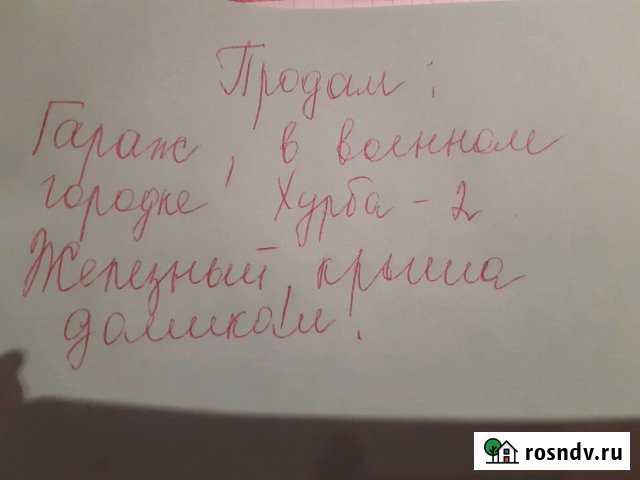 Продам:
Гараж, в военном
городке Хурба-2
Железный, крыша
домиком.
rosndv.ru